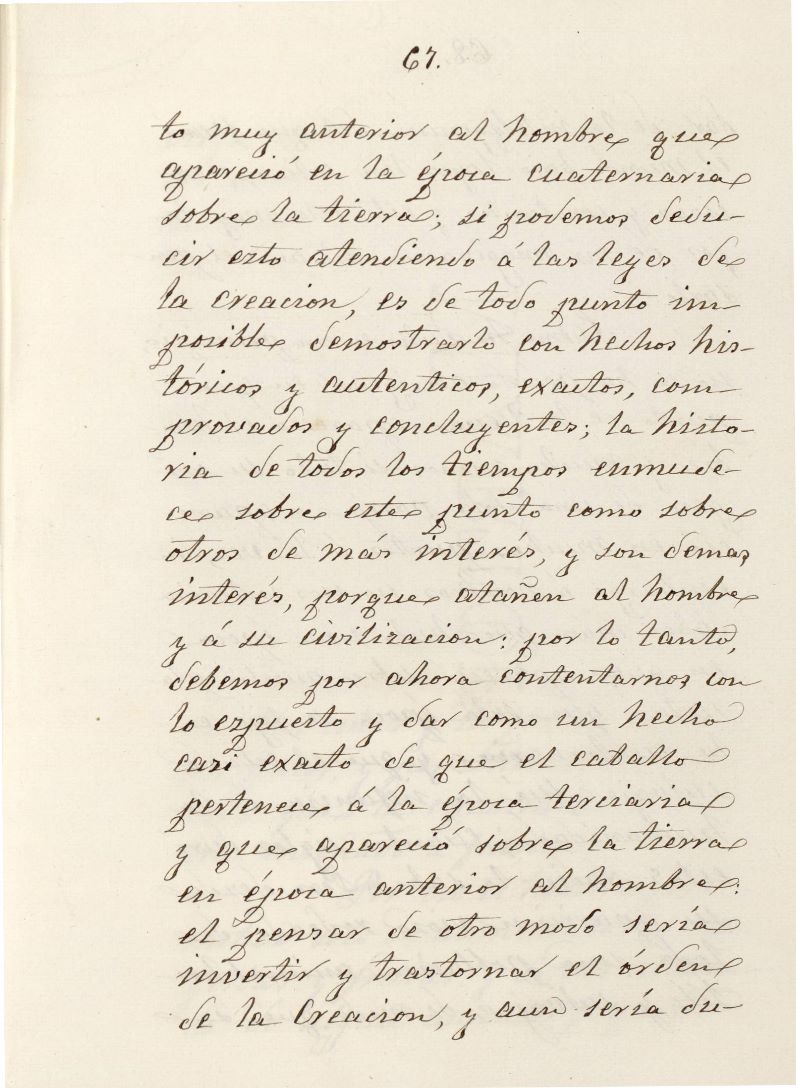 67.
to muy anterior al hombre que
apareció en la época cuaternaria
sobre la tierra; si podemos dedu-
cir ezto atendiendo á las leyes de
la creacion, es de todo punto im-
posible demostrarlo con hechos his-
tóricos y autenticos, exactos, com-
provados y concluyentes; la histo-
ria de todos los tiempos enmude-
ce sobre este punto como sobre
otros de más interés, y son demas
interés, porque atañen al hombre
y á su civilizacion: por lo tanto,
debemos por ahora contentarnos con
lo ezpuesto y dar como un hecho
cazi exacto de que el caballo
pertenece á la época terciaria
y que apareció sobre la tierra
en época anterior al hombre:
el penzar de otro modo sería
invertir y trastornar el órden
de la Creacion, y aun sería du-